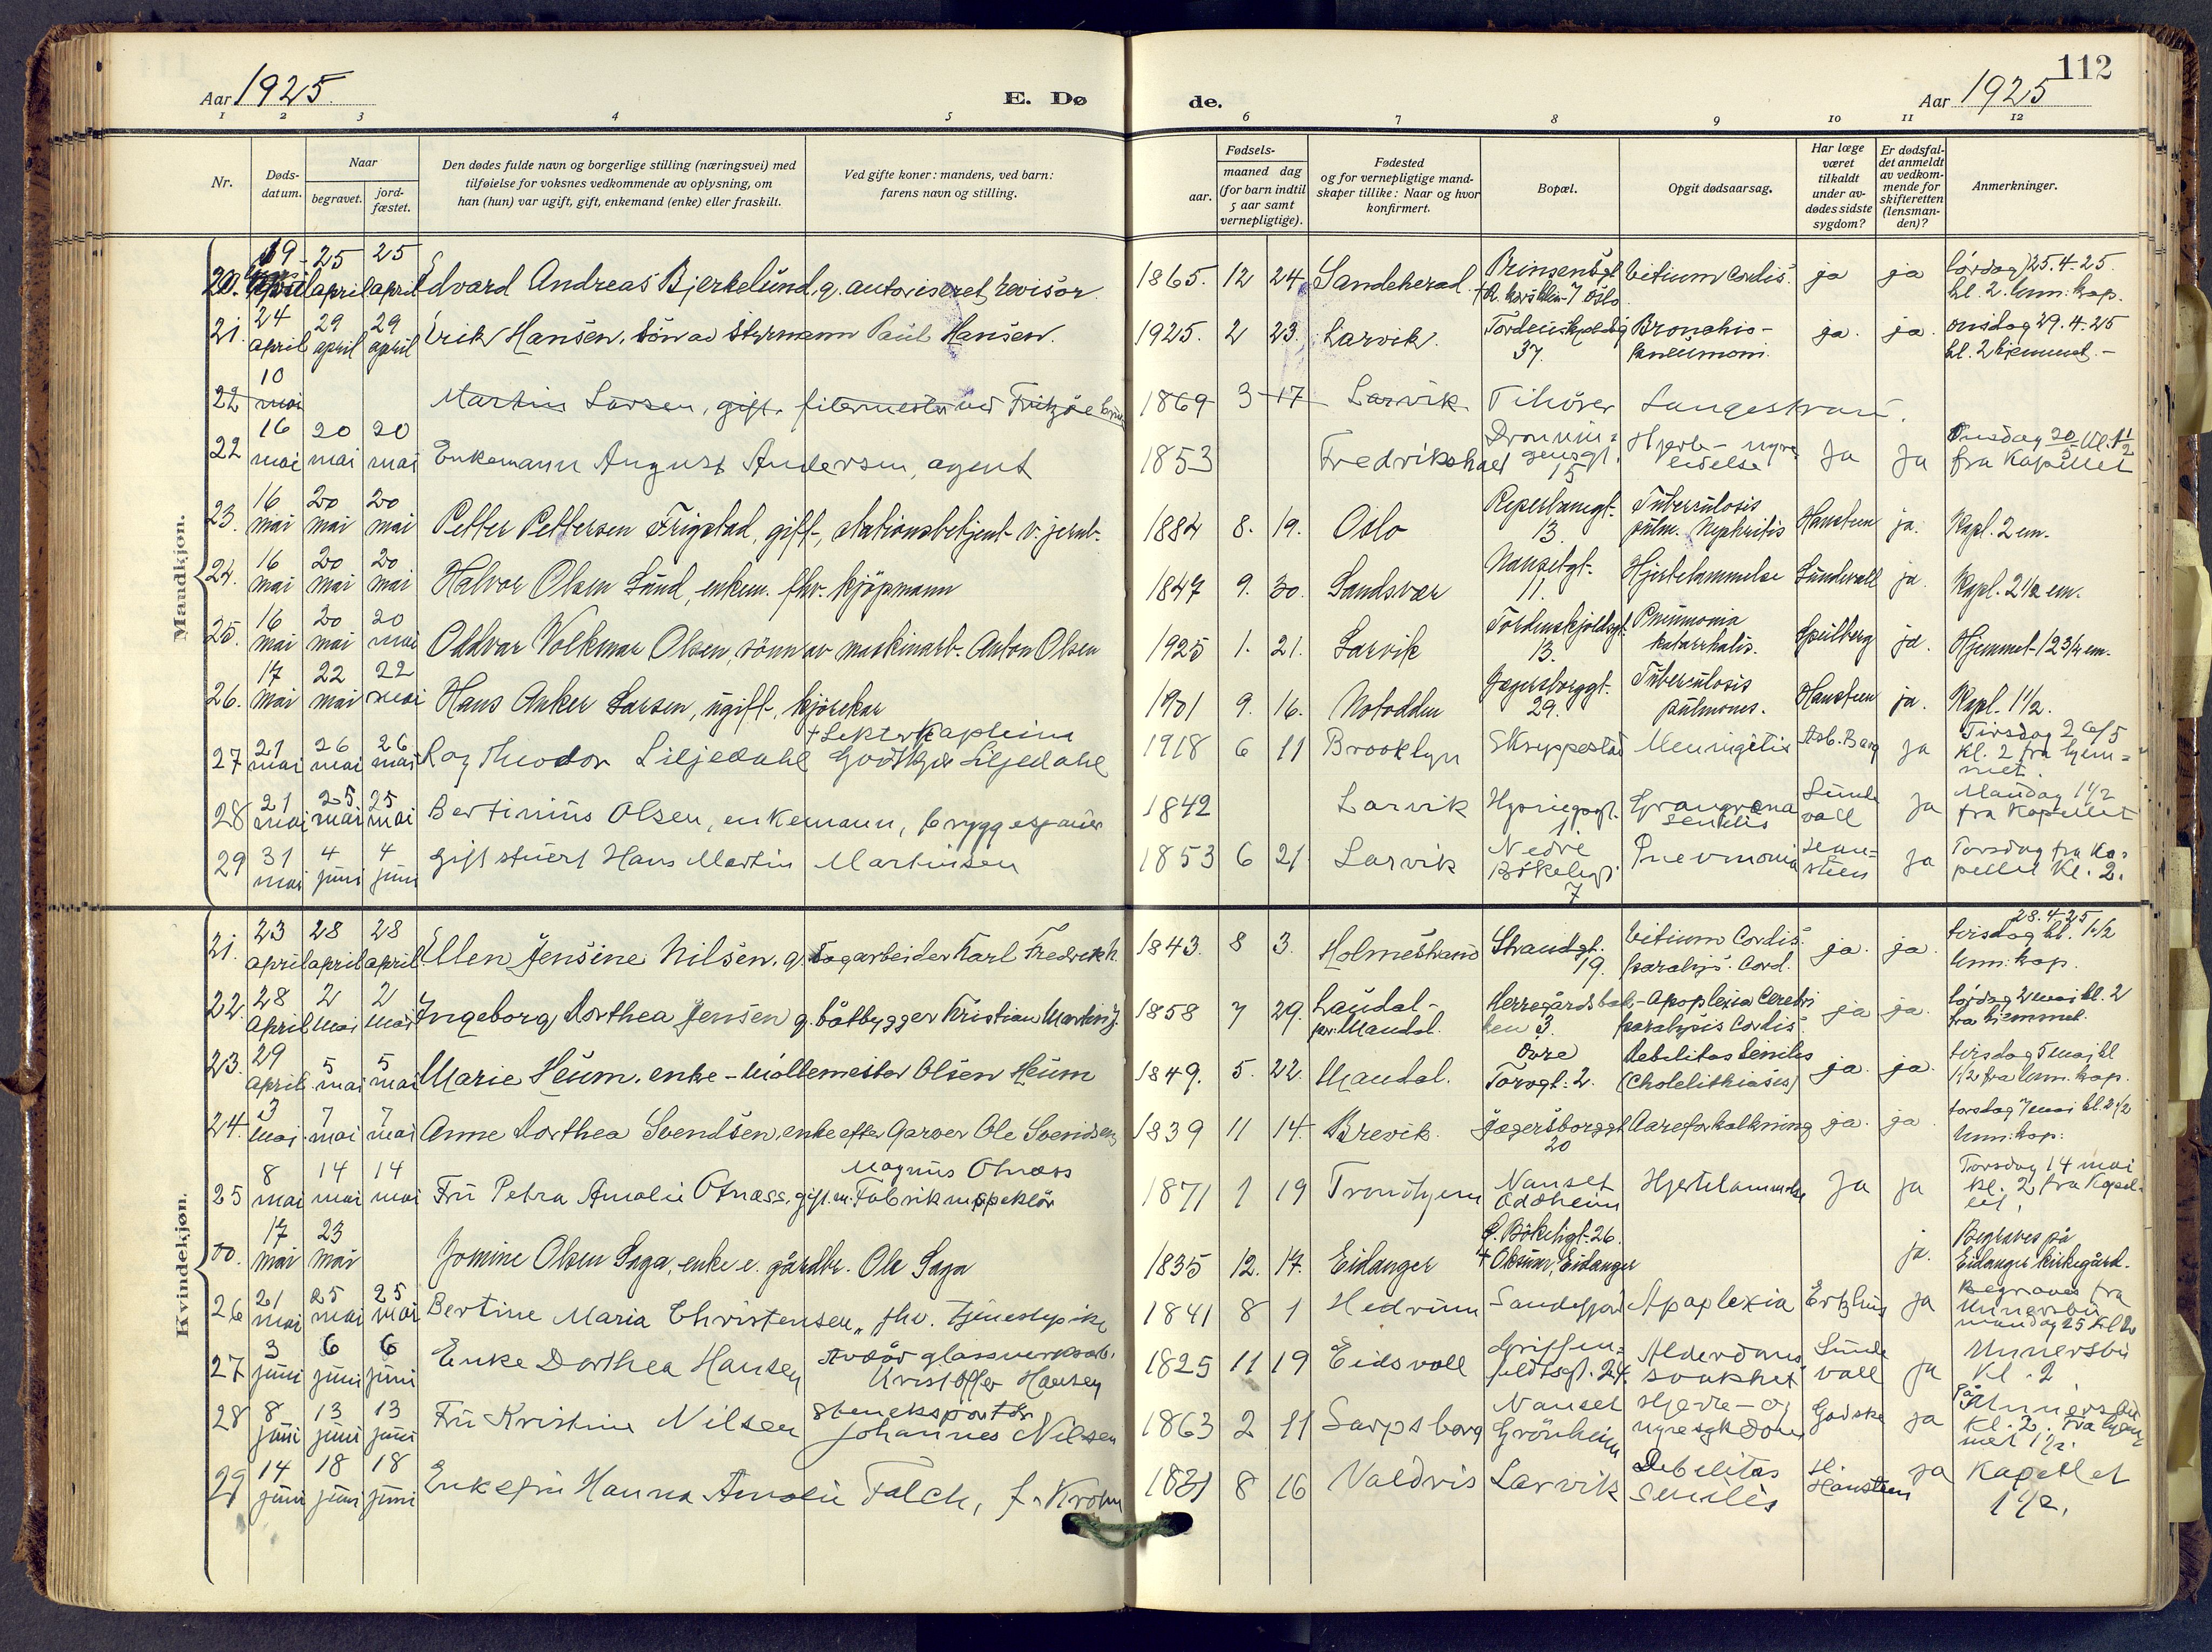 112
Aar 1925.
E. Dø
de.
Aar 1925
1 2 3 4 5 6 7 8 9 10 11 12
Nr.
Døds-
datum.
Naar
begravet.
jord-
fæstet.
Den dødes fulde navn og borgerlige stilling (næringsvei) med
tilføielse for voksnes vedkommende av oplysning, om
han (hun) var ugift, gift, enkemand (enke) eller fraskilt.
Ved gifte koner: mandens, ved barn:
farens navn og stilling.
Fødsels-
aar.
maaned dag
(for barn indtil
5 aar samt
vernepligtige).
Fødested
og for vernepligtige mand-
skaper tillike: Naar og hvor
konfirmert.
Bopæl.
Opgit dødsaarsag.
Har læge
været
tilkaldt
under av-
dødes sidste
sygdom?
Er dødsfal-
det anmeldt
av vedkom-
mende for
skifteretten
(lensman-
den)?
Anmerkninger.
Mandkjøn.
20. 19 april 25 april 25 april Edvard Andreas Bjerkelund, g. autoriseret revisor 1865. 12 24 Sandeherad Prinsensgt. Vitium Cordis. ja ja lördag 25.4-25.
kl. 2. kap.
21. 24 april 29 april 29 april Erik Hansen, sön av styrmann Paul Hansen. 1925. 2 23. Larvik. Tordenskjoldsg 37. Bronchio-
pneumoni. ja. ja. onsdag 29.4-25
kl. 2 hjemmet.-
22 10 mai Martin Larsen, gift. ved Fritzöe 1869 3 17 Larvik.
22 16 mai 20 mai 20 mai Enkemann August Andersen, agent 1853 Fredrikshald Dronnin-
gensgt. 15 Hjerte- nyre
lidelse Ja Ja Onsdag 20
fra Kapellet
23. 16 mai 20 mai 20 mai Petter Pettersen Frigstad, gift, stationsbetjent v. jernb. 1884 8. 19. Oslo Reperbanegt. 13. Tuberculosis
pulm. Nephritis Hansteen ja. Kapl. 2 em.
24. 16 mai 20 mai 20 mai Halvor Olsen Lund, enkem. fhv. kjöpmann 1847 9. 30. Sandsvær Nansetgt. 11. Hjertelammelse Sundevall ja. Kapl. 2 1/2 em.
25. 16 mai 20 mai 20 mai Oddvar Volkmar Olsen, sönn av maskinarb. Anton Olsen 1925 1. 21. Larvik Tordenskjoldsgt. 13. Pneumonia
katarrhalis. Speilberg ja. Hjemmet 12 3/4 em.
26. 17 mai 22 mai 22 mai Hans Anker Larsen, ugift, kjörekar 1901 9. 16. Notodden Jegersborggt. 29. Tuberculosis
pulmones. Hansteen ja. Kapl. 1 1/2.
27 21 mai 26 mai 26 mai Roy Theodor Liljedahl Lekterkaptein
Liljedahl 1918 6 11 Brooklyn Skryppestad Meningitis Asb. Berg ja Tirsdag 26/5
kl. 2 fra hjem-
met.
28 21 mai 25 mai 25 mai Bertinius Olsen, enkemann, 1842 Larvik 11 Grangrena
senilis Sunde
vall ja Mandag 1 1/2
fra Kapellet
29 31 mai 4 juni 4 juni Gift stuert Hans Martin Martinsen 1853 6 21 Larvik Nedre
Bökeligt. 7 Pnevmonia Han-
steen ja Torsdag fra Ka-
pellet Kl. 2.
Kvindekjøn.
21. 23 april 28 april 28 april Ellen Jensine Nilsen, g. Sagarbeider Karl Fredrik N. 1843. 8 3. Holmestrand Strandgt. 19. Vitium Cordis.
paralys. Cord. ja. ja. 28.4-25
tirsdag kl. 1 1/2
kap.
22. 28 april 2 mai 2 mai Ingeborg Dorthea Jensen g. båtbygger Kristian Martin J. 1858 7 29. Laudal-
pr. Mandal. Herregårdsbak-
ken 3. Apoplexia Cerebri
paralysis Cordis. ja ja. lördag 2 mai kl. 2
fra hjemmet.
23. 29 april 5 mai 5 mai Marie Heum. enke - Möllemester Olsen Heum 1849. 5. 22. Mandal. Övre
Torvgt. 2. Debilitas Senilis
(Cholelithiasis) ja. ja. tirsdag 5 mai kl
1 1/2 fra kap.
24. 3 mai 7 mai 7 mai Anne Dorthea Svendsen, enke efter Garver Ole Svendsen 1839 11 14. Brevik. Jegersborggt 20 Aareforkalkning ja. ja. torsdag 7 mai kl. 2 1/2
kap.
25 8 mai 14 mai 14 mai Fru Petra Amalie Otnæss, gift. m. Fabrikinspektör Magnus Otnæss 1871 1 19 Trondhjem Nanset
Oddheim Hjertelammelse Ja ja Torsdag 14 mai
kl. 2 fra Kapel-
let.
00. 17 mai 23 mai Jomine Olsen Saga, enke e. gårdbr. Ole Saga 1835 12. 17. Eidanger Ö. Bökeligt. 26.
+ Eidanger ja. Begraves på
Eidanger kirkegård.
26 21 mai 25 mai 25 mai Bertine Maria Christensen, fhv. tjenestepike 1841 8 1 Hedrum Sandefjord Apoplexia ja Begraves fra
mandag 25 Kl 2
27 3 juni 6 juni 6 juni Enke Dorthea Hansen Avdöd glassverksarb.
Kristoffer Hansen 1825 11 19 Eidsvoll Griffen-
feldtsgt. 24. Alderdoms
svakhet Sunde
vall ja
Kl. 2
28 8 juni 13 juni 13 juni Fru Kristine Nilsen Steneksportör
Johannes Nilsen 1863 2 11 Sarpsborg Nanset
Grönheim Hjerte- og
nyresykdom Godske ja
Kl. 2. Fra hjem-
met 1 1/2.
29 14 juni 18 juni 18 juni Enkefru Hanna Amalie Falch, f. Krohn 1831 8 16 Valdris Larvik Debilitas
Senilis Hansteen ja Kapellet
1 1/2.